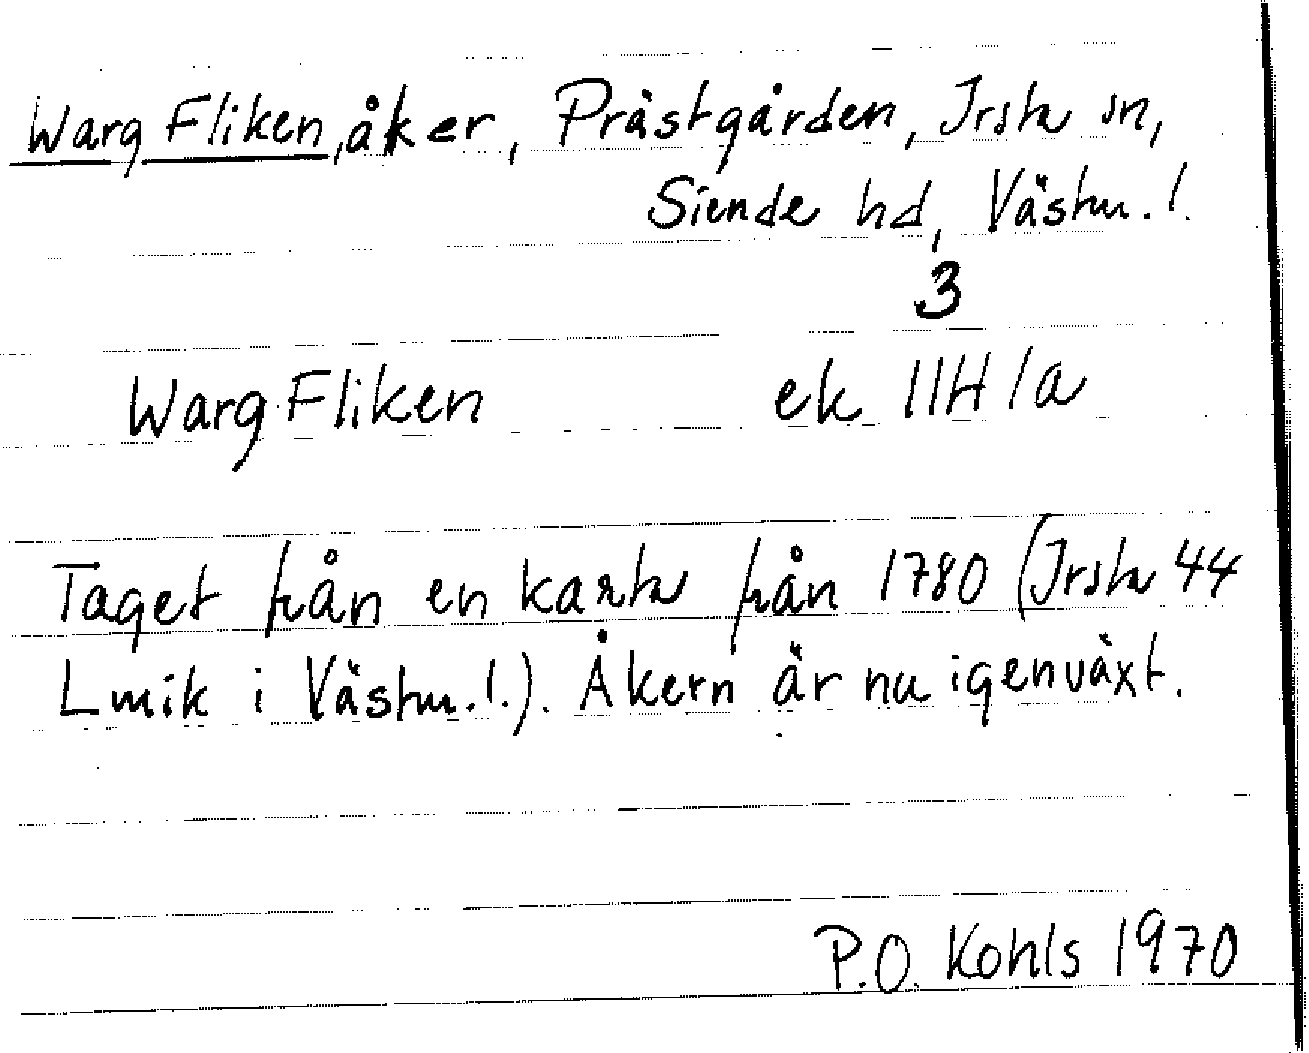 Warg Fliken, åker, Prästgården, Irsta sn,
Siende hd, Västm. l.
3
Warg Fliken ek 11H1a
Taget från en karta från 1780 (Irsta 44
Lmik i Västm. l.). Åkern är nu igenväxt.
P.O. Kohls 1970